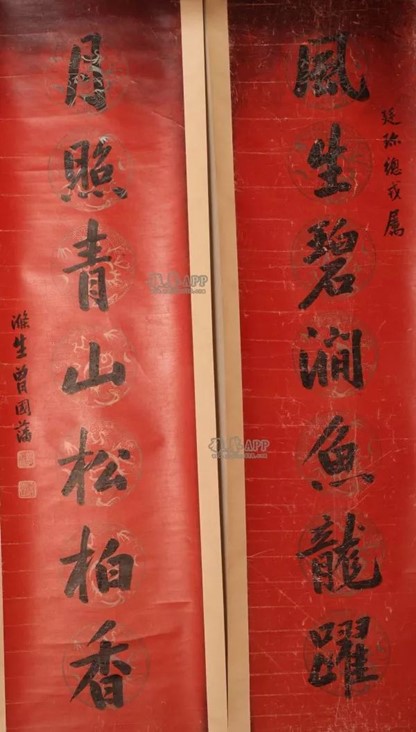 風生碧澗魚龍躍
總戎屬
月照青山松柏香
滌生曾國藩
APP
APP